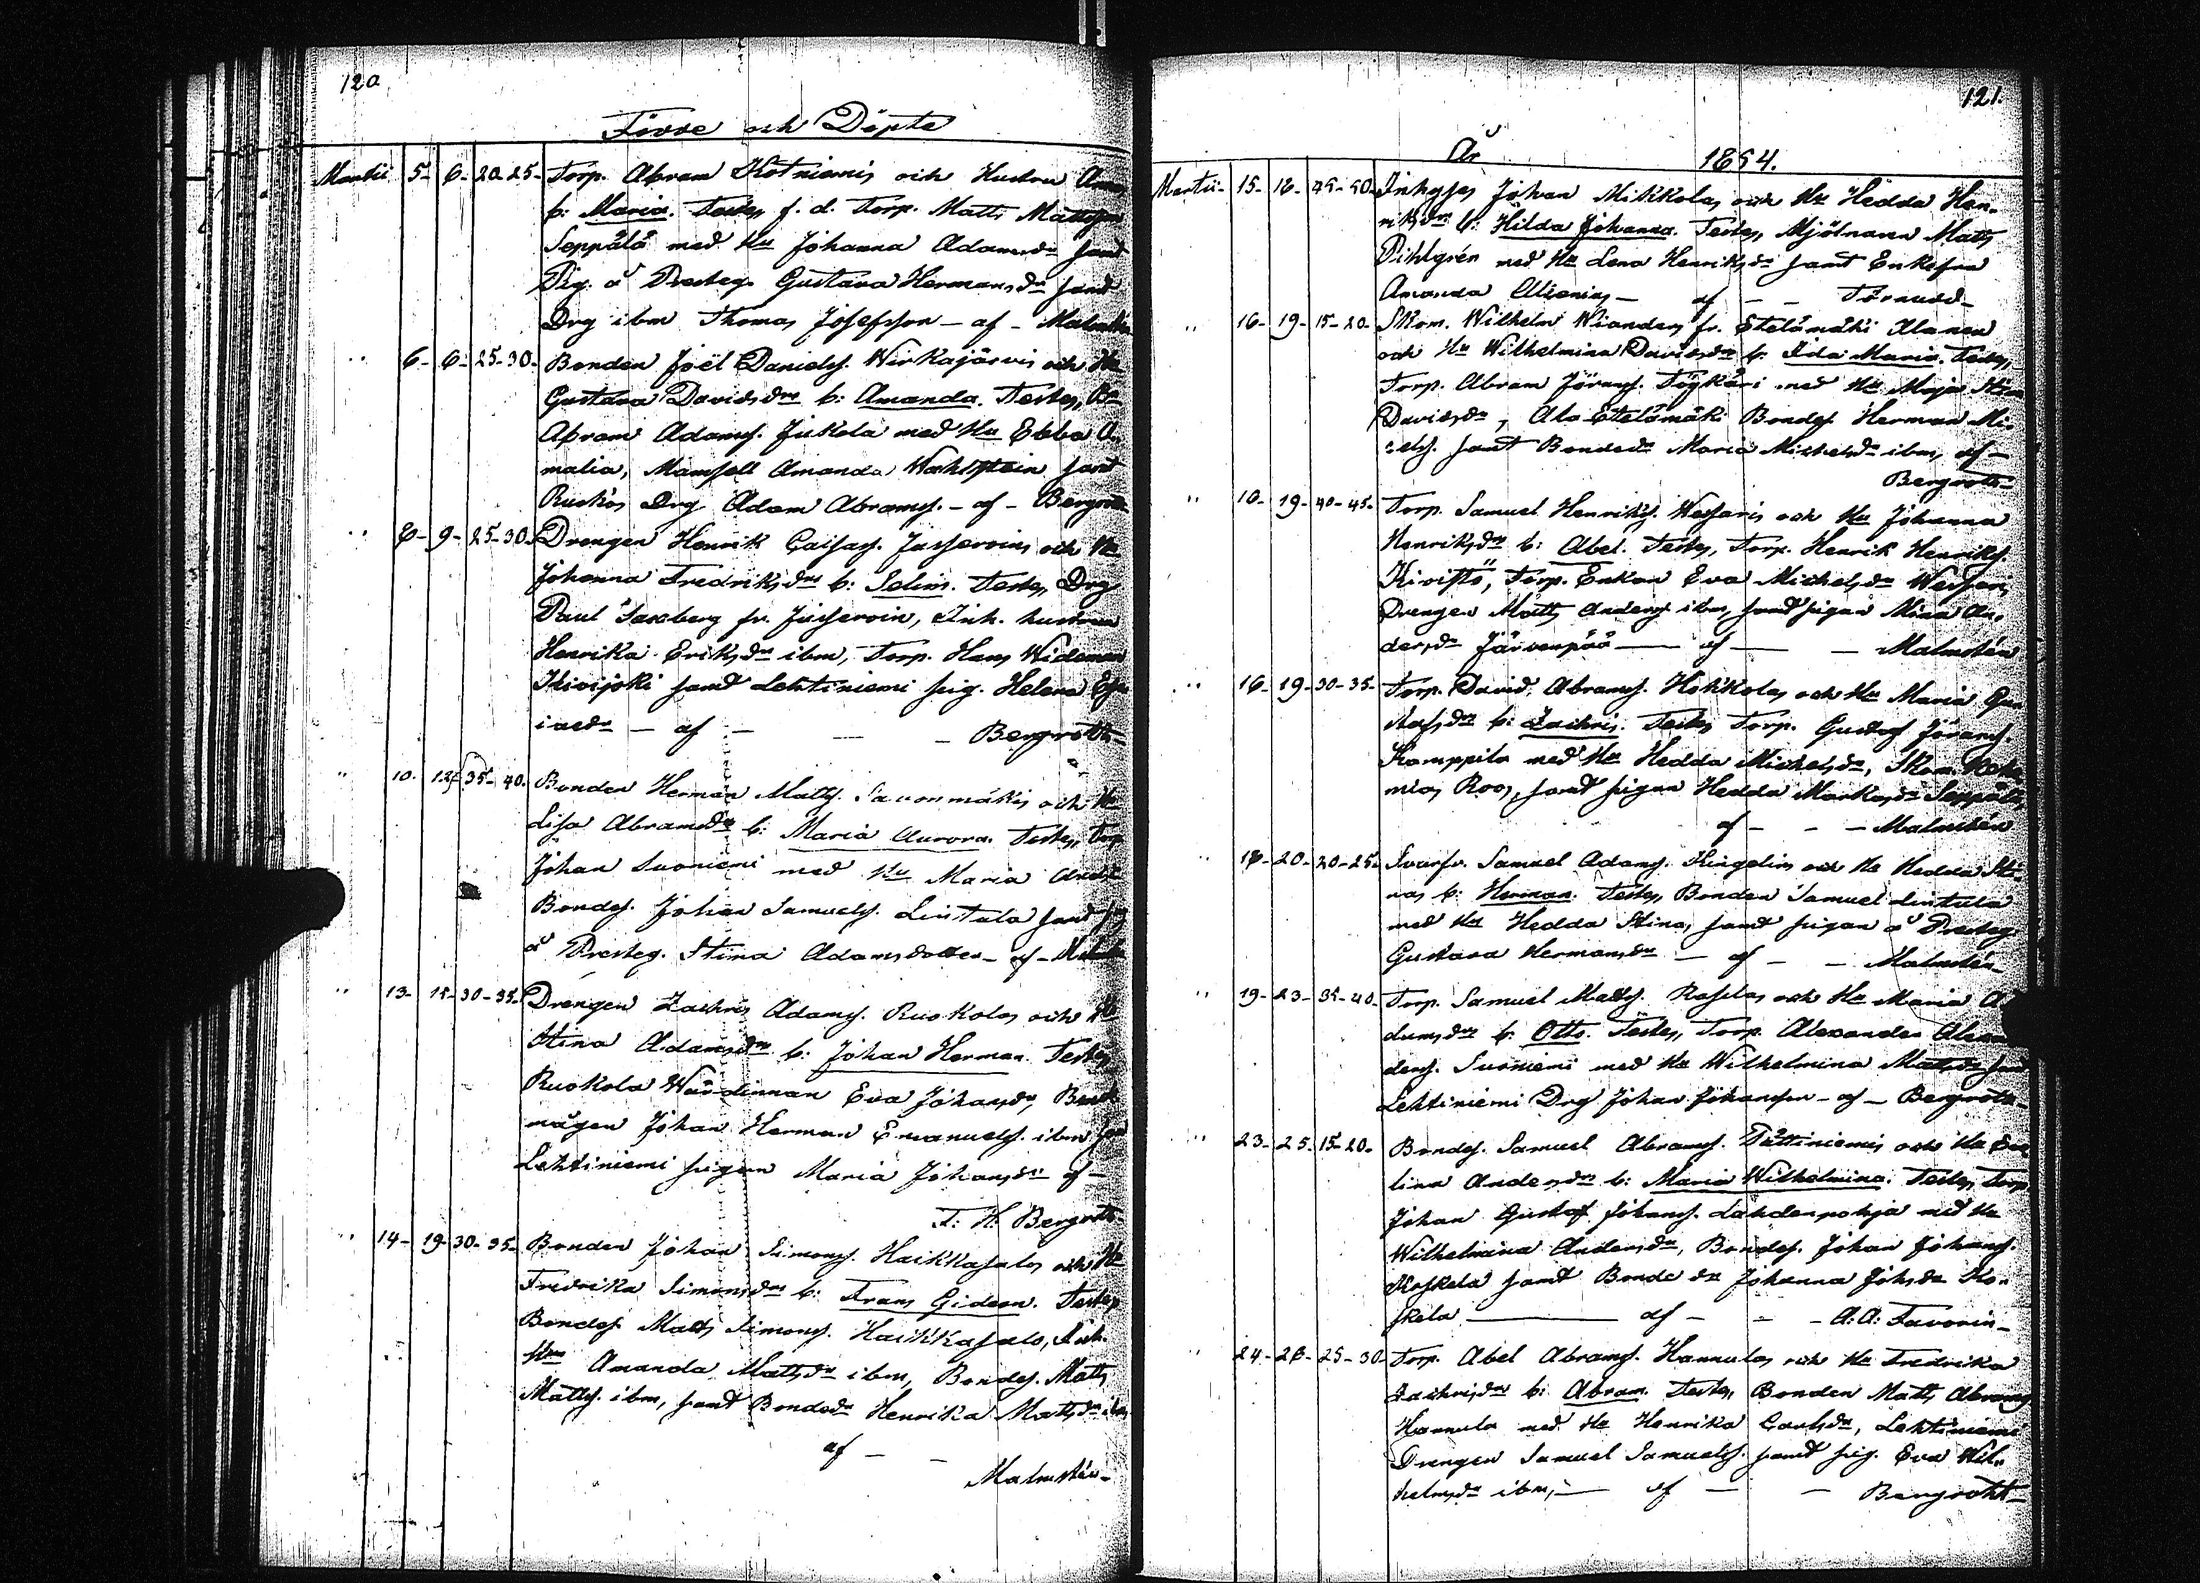 120
Födde och Döpte
Martii 5- 6- 20-25- Torp. Abram Kotniemis och Hustru Annas
b: Maria. Testes f. d. Torp. Matts Mattsson
Seppälä med Hu Johanna Adamsdr samt
Pig. å Presteg. Gustava Hermansdr samt
Drg ibm Thomas Josefsson - af - Malmstén
" 6- 6- 25-30- Bonden Joël Daniels. Wirkajärvis och Hu
Gustava Davidsdrs b: Amanda. Testes, Bn
Abram Adams. Jukola med Hu Ebba A-
malia, Mamsell Amanda Wahlstein samt
Drg Adam Abrams. - af - Bergroth
" 6- 9- 25-30. Drengen Henrik Jusseroins och Hu
Johanna Fredriksdrs b: Selim. Testes, Drg
Paul Saxberg fr. Jusseroin, Inh. hustrun
Henrika Eriksdr ibm, Torp. Hans Wideman
Kivijoki samt Lehtiniemi pig. Helena
- af - - - Bergroth-
" 10. 12- 35-40. Bonden Herman Matts. Savonmäkis och Hu
Lisa Abramsdrs b: Maria Aurora. Testes, Torp
Johan Suoniemi med Hu Maria
Bondes. Johan Samuels. Lintula samt pig
å Presteg. Stina Adamsdotter - af - Malmstén
" 13- 15- 30-35- Drengen Zachris Adams. Ruokolas och Hu
Stina Adamsdrs b: Johan Herman. Testes,
Ruokola Wärdinnan Eva Johansdr, Bond
mågen Johan Herman Emanuels. ibm samt
Lehtiniemi pigan Maria Johansdr af -
F: H. Bergroth-
" 14- 19- 30-35- Bonden Johan Simons. Haikkasalos och Hu
Fredrika Simonsdrs b: Frans Gideon. Testes
Bondes. Matts Simons. Haikkasalo, Inh.
Hun Amanda Mattsdr ibm, Bondes. Matts
Matts. ibm, samt Bondedr Henrika Mattsdr ibm,
af - -
Malmstén-
121.
År 1854.
Martii- 15- 18- 45-50- Inhyses Johan Mikkolas och Hu Hedda Hen-
riksdrs b: Hilda Johanna. Testes, Mjölnaren Matts
Pihlgrén med Hu Lena Henriksdr samt Enkefru
Amanda Alienius - af - - Törnudd-
" 16- 19- 15-20- Skom. Wilhelm Wianders fr. Etelämäki Alanen
och Hu Wilhelmina Davidsdrs b: Ida Maria. Testes,
Torp. Abram Jörans. med Hu Maja Stina
Davidsdr, Ala Etelämäki Bondes. Herman Mi-
chels. samt Bondedr Maria Michelsdr ibm, af -
Bergroth-
" 10- 19- 40-45- Torp. Samuel Henriks. Wessaris och Hu Johanna
Henriksdrs b: Abel. Testes, Torp. Henrik Henriks.
Kivistö, Torp. Enkan Eva Michelsdr Wessari,
Drengen Matts Anders. ibm, samt pigan Mina An-
dersdr Järvenpää - af - - Malmstén
" 16- 19- 30-35- Torp. David Abrams. Hokkolas och Hu Maria Gu-
stafsdrs b: Zachris. Testes Torp. Gustaf Jörans.
Kamppila med Hu Hedda Michelsdr, Skom.
Roos, samt pigan Hedda Marksdr Seppälä,
af - - - Malmstén
" 18- 20- 20-25- Samuel Adams. Kingelins och Hu Hedda Sti-
nas b: Herman. Testes, Bonden Samuel Lintula
med Hu Hedda Stina, samt pigan å Presteg.
Gustava Hermansdr - af - - Malmstén-
" 19- 23- 35-40- Torp. Samuel Matts. Rasilas och Hu Maria A-
damsdrs b: Otto. Testes, Torp. Alexander Alexan-
ders. Suoniemi med Hu Wilhelmina Mattsdr samt
Lehtiniemi Drg Johan Johansson - af - Bergroth-
" 23- 25- 15-20- Bondes. Samuel Abrams. Tättiniemis och Hu Eve-
lina Andersdrs b: Maria Wilhelmina. Testes, Torp.
Johan Gustaf Johans. Lahdenpohja med Hu
Wilhelmina Andersdr, Bondes. Johan Johans.
Koskela samt Bondedr Johanna Johsdr Ko-
skela - af - - - A: A: Favorin-
" 24- 26- 25-30- Torp. Abel Abrams. Hannulas och Hu Fredrika
Zachrisdrs b: Abram. Testes, Bonden Matts Abrams
Hannula med Hu Henrika Carlsdr, Lehtiniemi
Drengen Samuel Samuels. samt pig. Eva Wil-
helmsdr ibm, - af - - Bergroth-